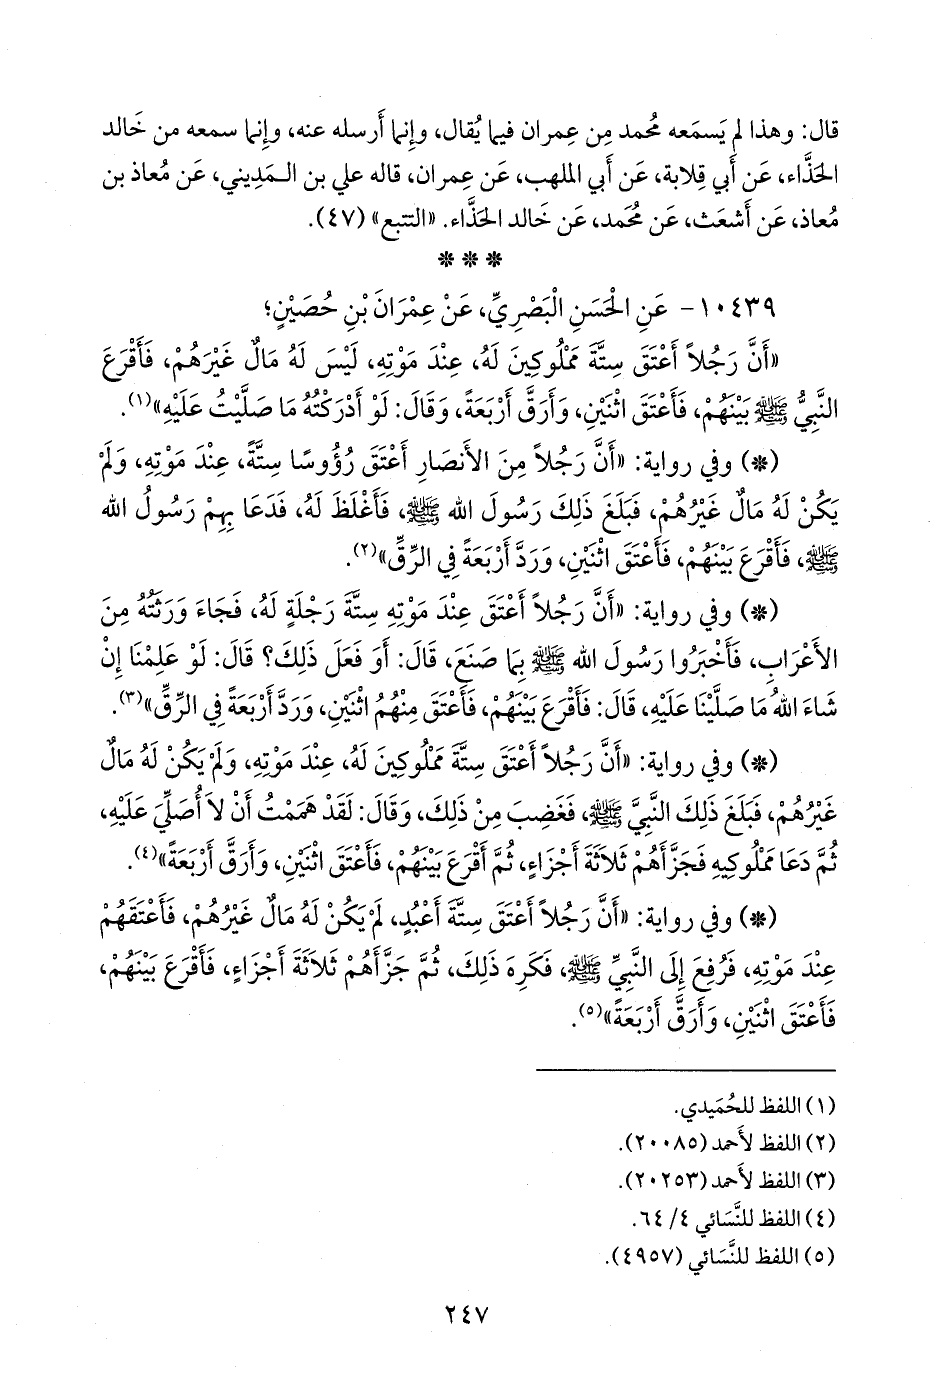 قال: وهذا لم يَسمَعه مُحمد مِن عِمران فيما يُقال، وإنما أَرسله عنه، وإنما سمعه من خَالد
الحَذَّاء، عَن أَبي قِلابة، عَن أَبي المهلب، عَن عِمران، قاله علي بن الـمَدِيني، عَن مُعاذ بن
مُعاذ، عَن أَشعَث، عَن مُحَمد، عَن خَالد الحَذَّاء. «التتبع» (٤٧).
* * *
١٠٤٣٩- عَنِ الْحَسَنِ الْبَصْرِيِّ، عَنْ عِمْرَانَ بْنِ حُصَيْنٍ؛
«أَنَّ رَجُلاً أَعْتَقَ سِتَّةَ مَمْلُوكِينَ لَهُ، عِنْدَ مَوْتِهِ، لَيْسَ لَهُ مَالٌ غَيْرَهُمْ، فَأَقْرَعَ
النَّبِيُّ ﷺ بَيْنَهُمْ، فَأَعْتَقَ اثْنَيْنِ، وَأَرَقَّ أَرْبَعَةً، وَقَالَ: لَوْ أَدْرَكْتُهُ مَا صَلَّيْتُ عَلَيْهِ»(١).
(*) وفي رواية: «أَنَّ رَجُلاً مِنَ الأَنصَارِ أَعْتَقَ رُؤُوسًا سِتَّةً، عِنْدَ مَوْتِهِ، وَلَمْ
يَكُنْ لَهُ مَالٌ غَيْرُهُمْ، فَبَلَغَ ذَلِكَ رَسُولَ الله ﷺ، فَأَغْلَظَ لَهُ، فَدَعَا بِهِمْ رَسُولُ الله
ﷺ، فَأَقْرَعَ بَيْنَهُمْ، فَأَعْتَقَ اثْنَيْنِ، وَرَدَّ أَرْبَعَةً فِي الرِّقِّ»(٢).
(*) وفي رواية: «أَنَّ رَجُلاً أَعْتَقَ عِنْدَ مَوْتِهِ سِتَّةَ رَجْلَةٍ لَهُ، فَجَاءَ وَرَثَتُهُ مِنَ
الأَعْرَابِ، فَأَخْبَرُوا رَسُولَ الله ﷺ بِمَا صَنَعَ، قَالَ: أَوَ فَعَلَ ذَلِكَ؟ قَالَ: لَوْ عَلِمْنَا إِنْ
شَاءَ اللهُ مَا صَلَّيْنَا عَلَيْهِ، قَالَ: فَأَقْرَعَ بَيْنَهُمْ، فَأَعْتَقَ مِنْهُمُ اثْنَيْنِ، وَرَدَّ أَرْبَعَةً فِي الرِّقِّ»(٣).
(*) وفي رواية: «أَنَّ رَجُلاً أَعْتَقَ سِتَّةَ مَمْلُوكِينَ لَهُ، عِنْدَ مَوْتِهِ، وَلَمْ يَكُنْ لَهُ مَالٌ
غَيْرُهُمْ، فَبَلَغَ ذَلِكَ النَّبِيَّ ﷺ، فَغَضِبَ مِنْ ذَلِكَ، وَقَالَ: لَقَدْ هَمَمْتُ أَنْ لاَ أُصَلِّيَ عَلَيْهِ،
ثُمَّ دَعَا مَمْلُوكِيهِ فَجَزَّأَهُمْ ثَلاَثَةَ أَجْزَاءٍ، ثُمَّ أَقْرَعَ بَيْنَهُمْ، فَأَعْتَقَ اثْنَيْنِ، وَأَرَقَّ أَرْبَعَةً»(٤).
(*) وفي رواية: «أَنَّ رَجُلاً أَعْتَقَ سِتَّةَ أَعْبُدٍ، لَمْ يَكُنْ لَهُ مَالٌ غَيْرُهُمْ، فَأَعْتَقَهُمْ
عِنْدَ مَوْتِهِ، فَرُفِعَ إِلَى النَّبِيِّ ﷺ، فَكَرِهَ ذَلِكَ، ثُمَّ جَزَّأَهُمْ ثَلاَثَةَ أَجْزَاءٍ، فَأَقْرَعَ بَيْنَهُمْ،
فَأَعْتَقَ اثْنَيْنِ، وَأَرَقَّ أَرْبَعَةً»(٥).
(١) اللفظ للحُمَيدي.
(٢) اللفظ لأَحمد (٢٠٠٨٥).
(٣) اللفظ لأَحمد (٢٠٢٥٣).
(٤) اللفظ للنَّسَائي ٤/ ٦٤.
(٥) اللفظ للنَّسَائي (٤٩٥٧).
٢٤٧